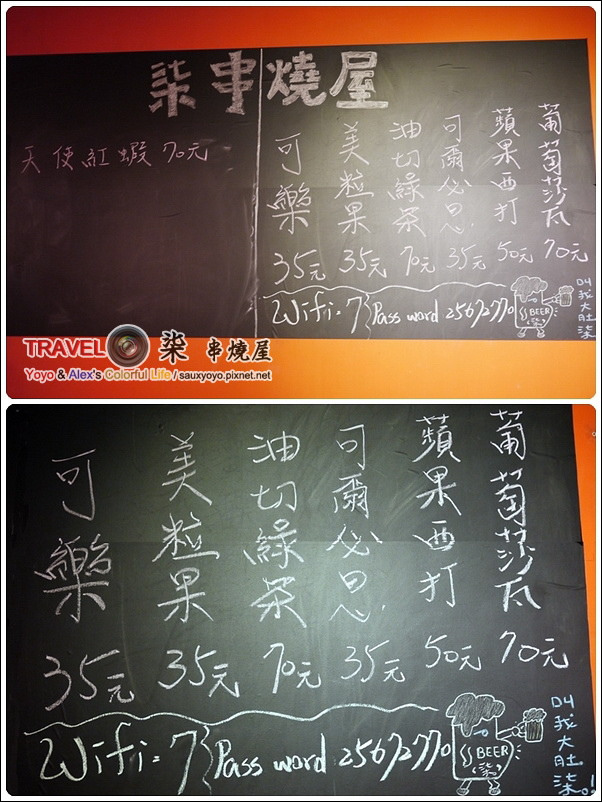 柒串燒屋
天使紅蝦 70元
葡萄莎瓦 70元
蘋果西打 50元
可爾必思 35元
油切綠茶 70元
美粒果 35元
可樂 35元
Wifi=7 Pass word 25672770
BEER
柒
叫我大肚柒。!
TRAVEL 柒 串燒屋
Yoyo & Alex's Colorful Life / sauxyoyo.pixnet.net
葡萄莎瓦 70元
蘋果西打 50元
可爾必思 35元
油切綠茶 70元
美粒果 35元
可樂 35元
Wifi=7 Pass word 25672770
BEER
柒
叫我大肚柒。!